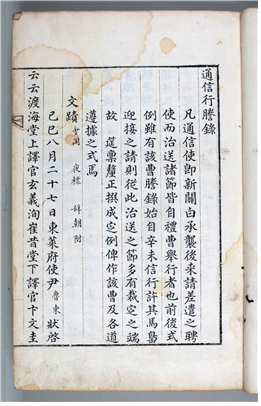 通信行謄錄
凡通信使即新關白承襲後來請差遣之聘
使而治送諸節皆自禮曹舉行者也前後式
例雖有該曹謄錄始自辛未信行許其馬島
迎接之請則從此治送之節多有裁定之端
故 蓮稟釐正撰成定例俾作該曹及各道
遵據之式焉
文蹟
己巳八月二十七日東萊府使尹魯東狀啓
云云渡海堂上譯官玄義洵崔昔堂下譯官卞文圭